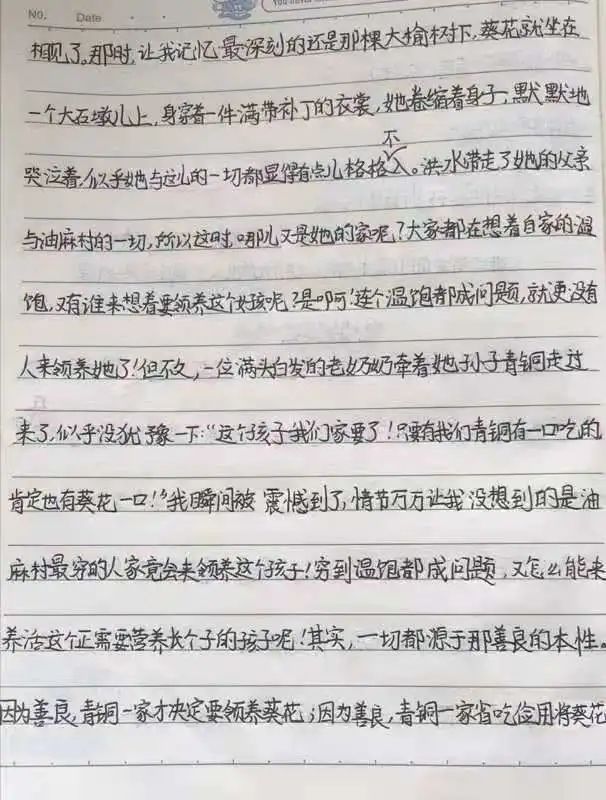 No.
Date
相见了。那时,让我记忆最深刻的还是那棵大榆树下,葵花就坐在
一个大石墩儿上,身穿着一件满带补丁的衣裳,她卷缩着身子,默默地
哭泣着,似乎她与这儿的一切都显得有点儿格格不入。洪水带走了她的父亲
与油麻村的一切,所以这时,哪儿又是她的家呢?大家都在想着自家的温
饱,又有谁来想着要领养这个女孩呢?是啊!连个温饱都成问题,就更没有
人来领养她了!但不久,一位满头白发的老奶奶牵着她孙子青铜走过
来了,似乎没犹豫一下:“这个孩子我们家要了!只要有我们青铜有一口吃的,
肯定也有葵花一口!”我瞬间被震憾到了,情节万万让我没想到的是油
麻村最穷的人家竟会来领养这个孩子!穷到温饱都成问题,又怎么能来
养活这个正需要营养长个子的孩子呢!其实,一切都源于那善良的本性。
因为善良,青铜一家才决定要领养葵花;因为善良,青铜一家省吃俭用将葵花